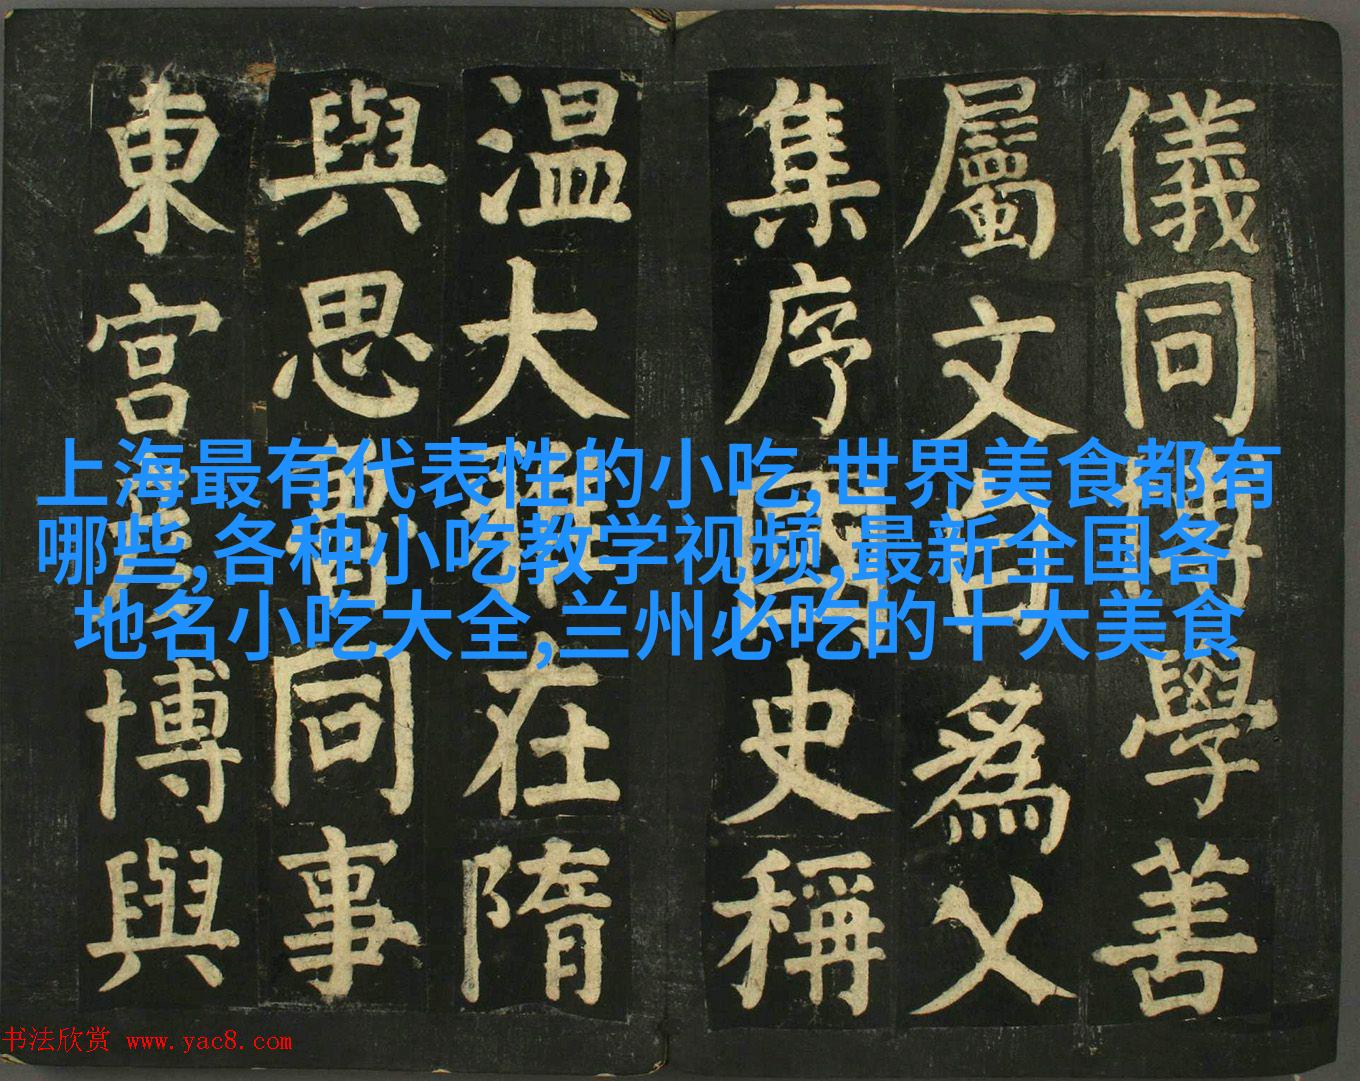 儀同博學善
屬文自爲父
集序國史稱
温大雅在隋
與思魯同事
東宮彥博與
上海最有代表性的小吃,世界美食都有
哪些,各种小吃教学视频,最新全国各
地名小吃大全,兰州必吃的十大美食
书法欣赏 www.yac8.com